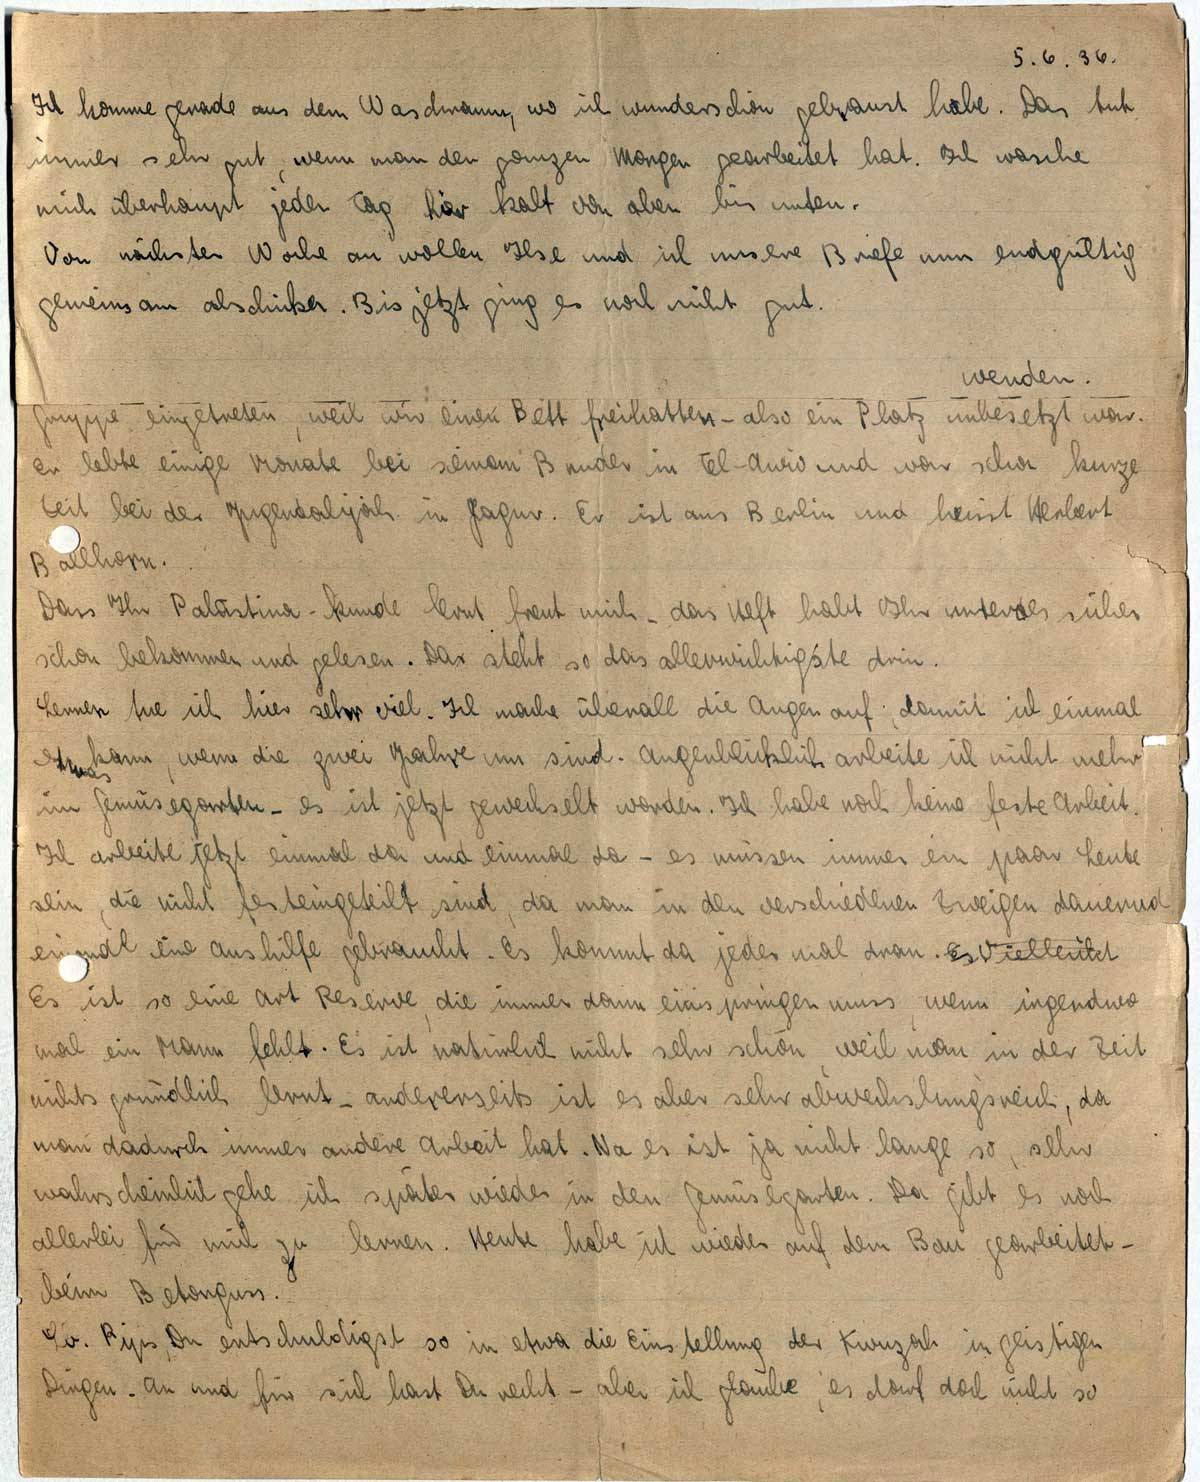 5.6.36.
Ich komme gerade aus dem Waschraum, wo ich wunderschön gebraust habe. Das tut
immer sehr gut, wenn man den ganzen Morgen gearbeitet hat. Ich wasche
mich überhaupt jeden Tag hier kalt von oben bis unten.
Von nächster Woche an wollen Ilse und ich unsere Briefe nun endgültig
gemeinsam abschicken. Bis jetzt ging es noch nicht gut.
wenden.
Gruppe eingetreten, weil wir einen Bett freihatten - also ein Platz unbesetzt war.
Er lebte einige Monate bei seinem Bruder in Tel-Aviv und war schon kurze
Zeit bei der Jugendalijah in Jagur. Er ist aus Berlin und heisst Herbert
Ballhorn.
Dass Ihr Palästina-kunde lernt freut mich - das Heft habt Ihr unterdes sicher
schon bekommen und gelesen. Da steht so das allerwichtigste drin.
Lernen tue ich hier sehr viel. Ich mache überall die Augen auf, damit ich einmal
etwas kann, wenn die zwei Jahre um sind. Augenblicklich arbeite ich nicht mehr
im Gemüsegarten - es ist jetzt gewechselt worden. Ich habe noch keine feste Arbeit.
Ich arbeite jetzt einmal da und einmal da - es müssen immer ein paar Leute
sein, die nicht festeingeteilt sind, da man in den verschiedenen Zweigen dauernd
einmal eine Aushilfe gebraucht. Es kommt da jeder mal dran. Es Vielleicht
Es ist so eine Art Reserve, die immer dann einspringen muss, wenn irgendwo
mal ein Mann fehlt. Es ist natürlich nicht sehr schön, weil man in der Zeit
nichts gründlich lernt - andererseits ist es aber sehr abwechslungsreich, da
man dadurch immer andere Arbeit hat. Na es ist ja nicht lange so, sehr
wahrscheinlich gehe ich später wieder in den Gemüsegarten. Da gibt es noch
allerlei für mich zu lernen. Heute habe ich wieder auf dem Bau gearbeitet -
beim Betonguss.
Lb. Pips, Du entschuldigst so in etwa die Einstellung der Kwuzah in geistigen
Dingen. An und für sich hast Du recht - aber ich glaube, es darf doch nicht so